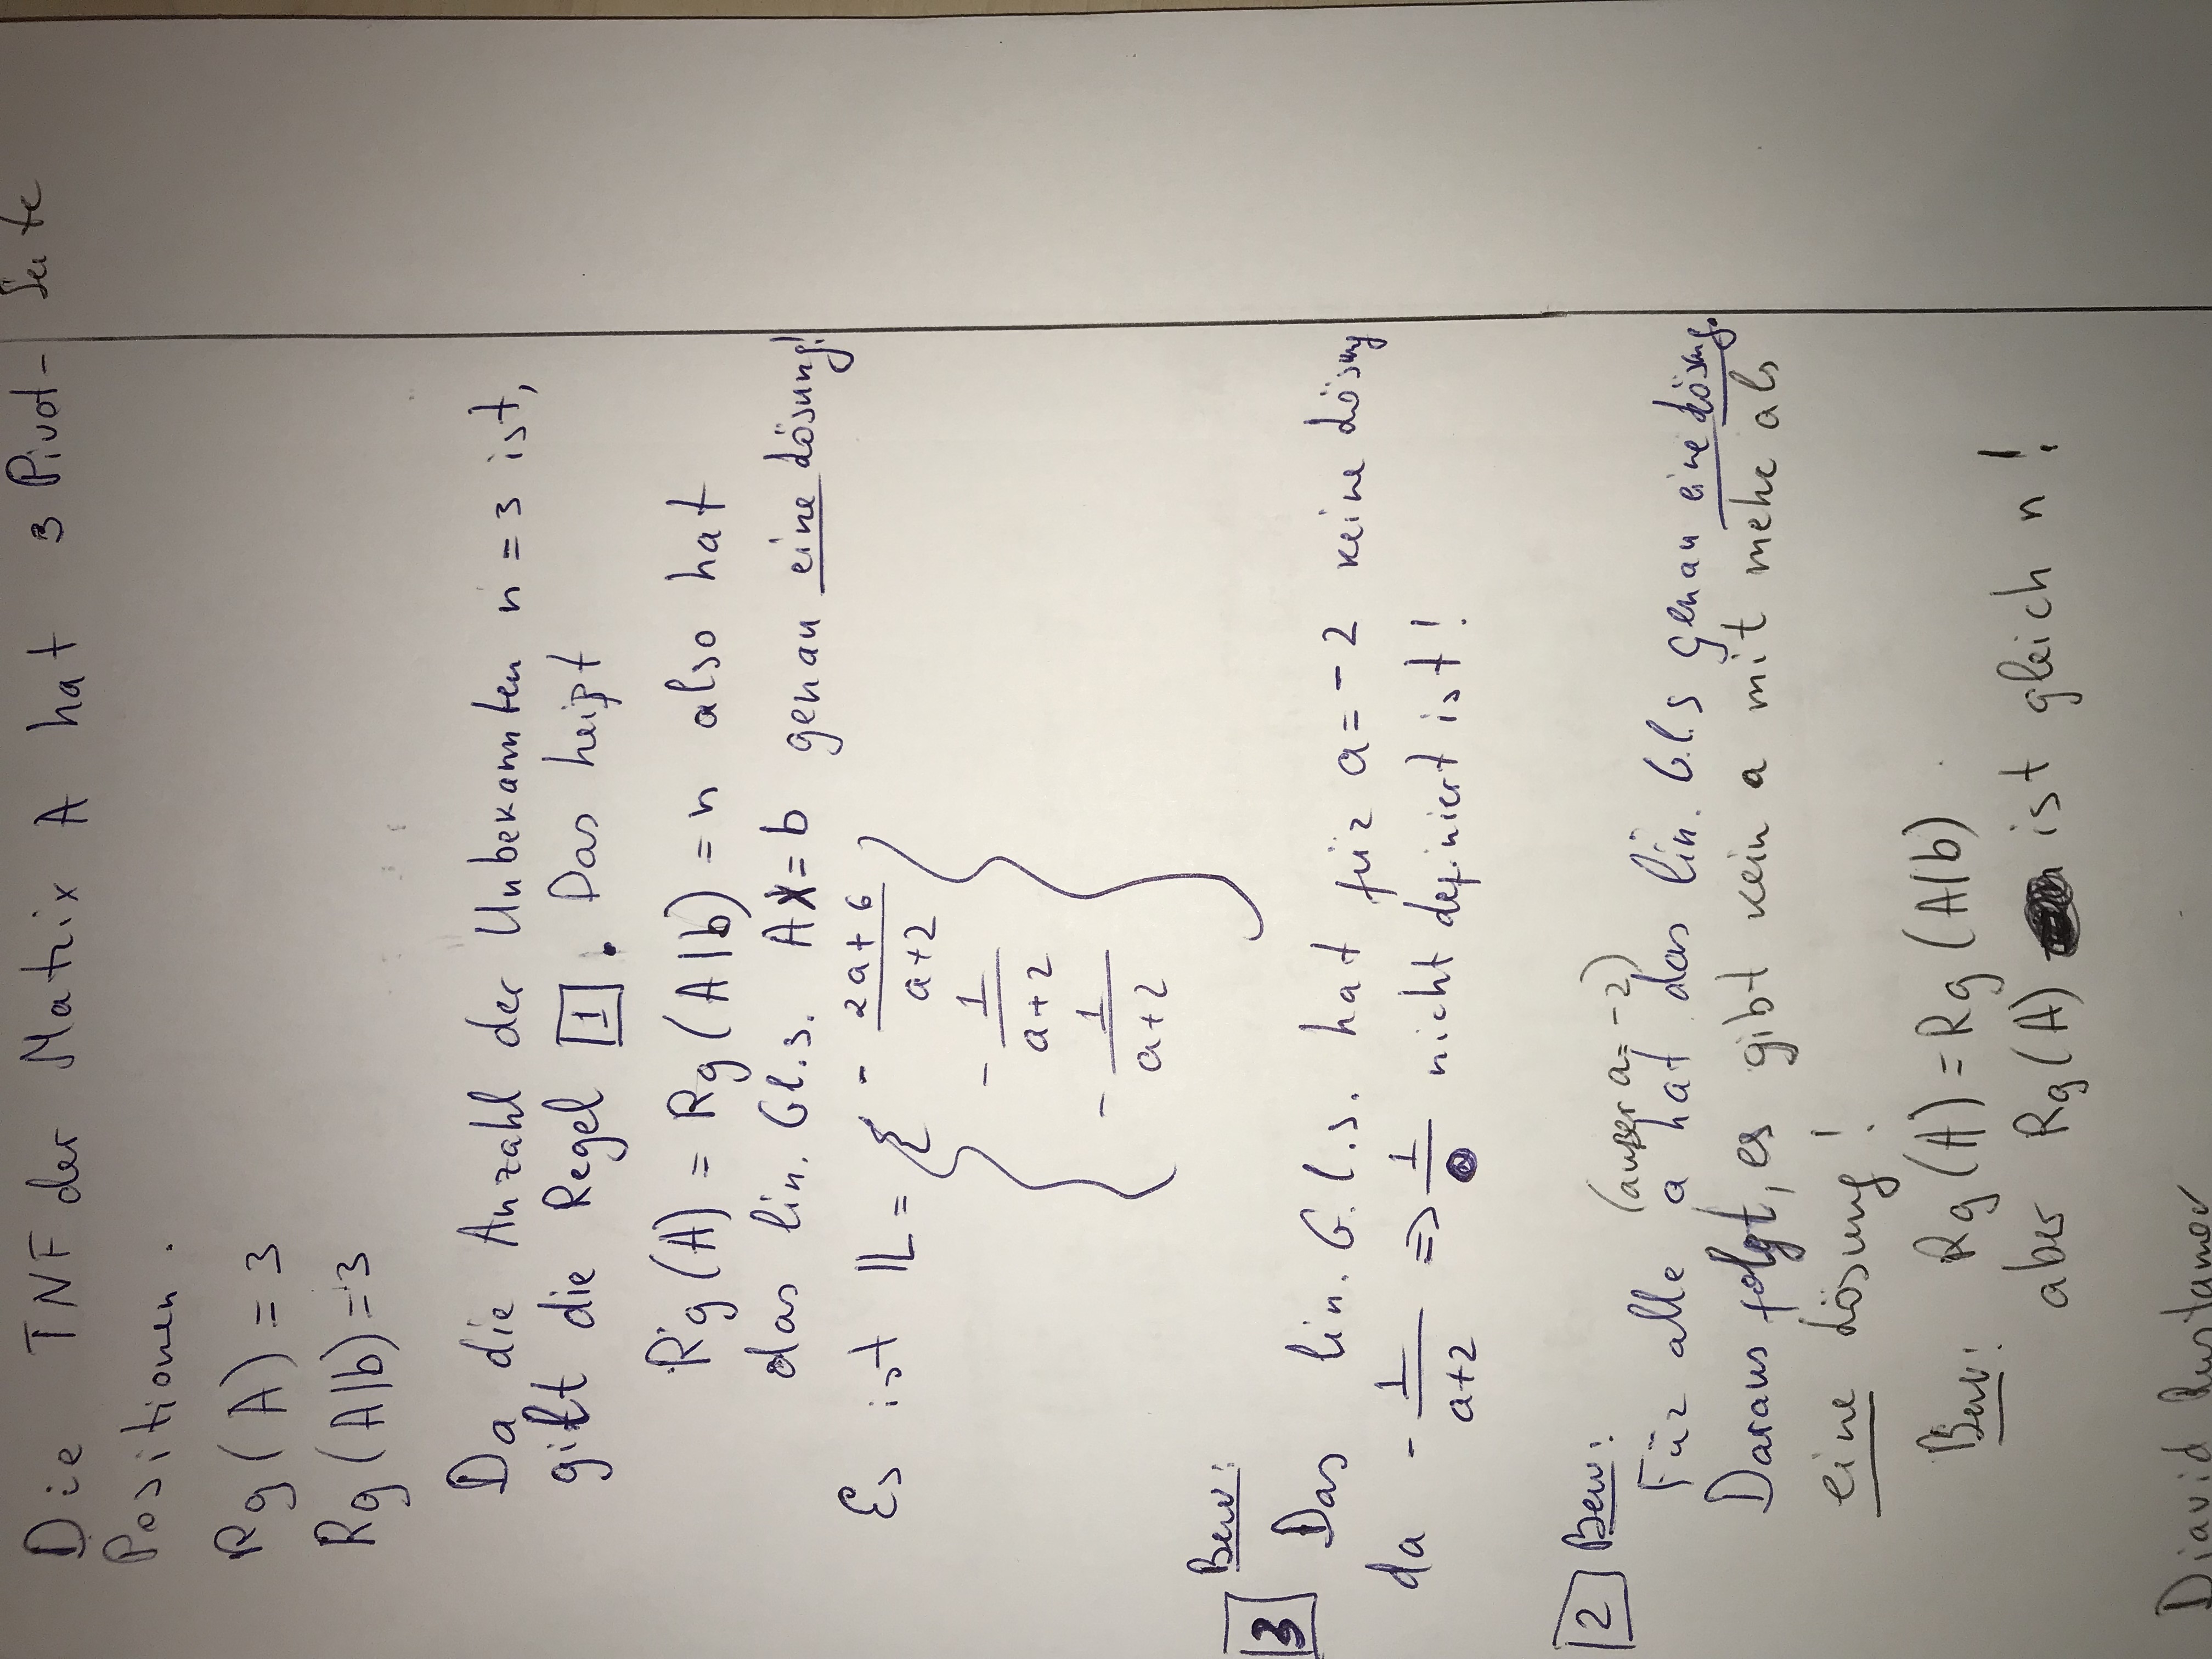 Die TNF der Matrix A hat 3 Pivot- Seite
Positionen.
Rg(A) = 3
Rg(A|b) = 3
Da die Anzahl der Unbekannten n = 3 ist,
gilt die Regel 1. Das heißt
Rg(A) = Rg(A|b) = n also hat
das lin. Gl.s. AX = b genau eine Lösung!
Es ist 𝕃 = { - 2a+6 / a+2
- 1 / a+2
- 1 / a+2 }
Bew:
3
Das lin. G.l.s. hat für a = -2 keine Lösung
da - 1 / a+2 => 1 / 0 nicht definiert ist!
2 Bew:
(außer a = -2)
Für alle a hat das lin. Gl.s genau eine Lösung.
Daraus folgt, es gibt kein a mit mehr als
eine Lösung!
Bew: Rg(A) = Rg(A|b)
aber Rg(A) ist gleich n!
Diavid Rustamov